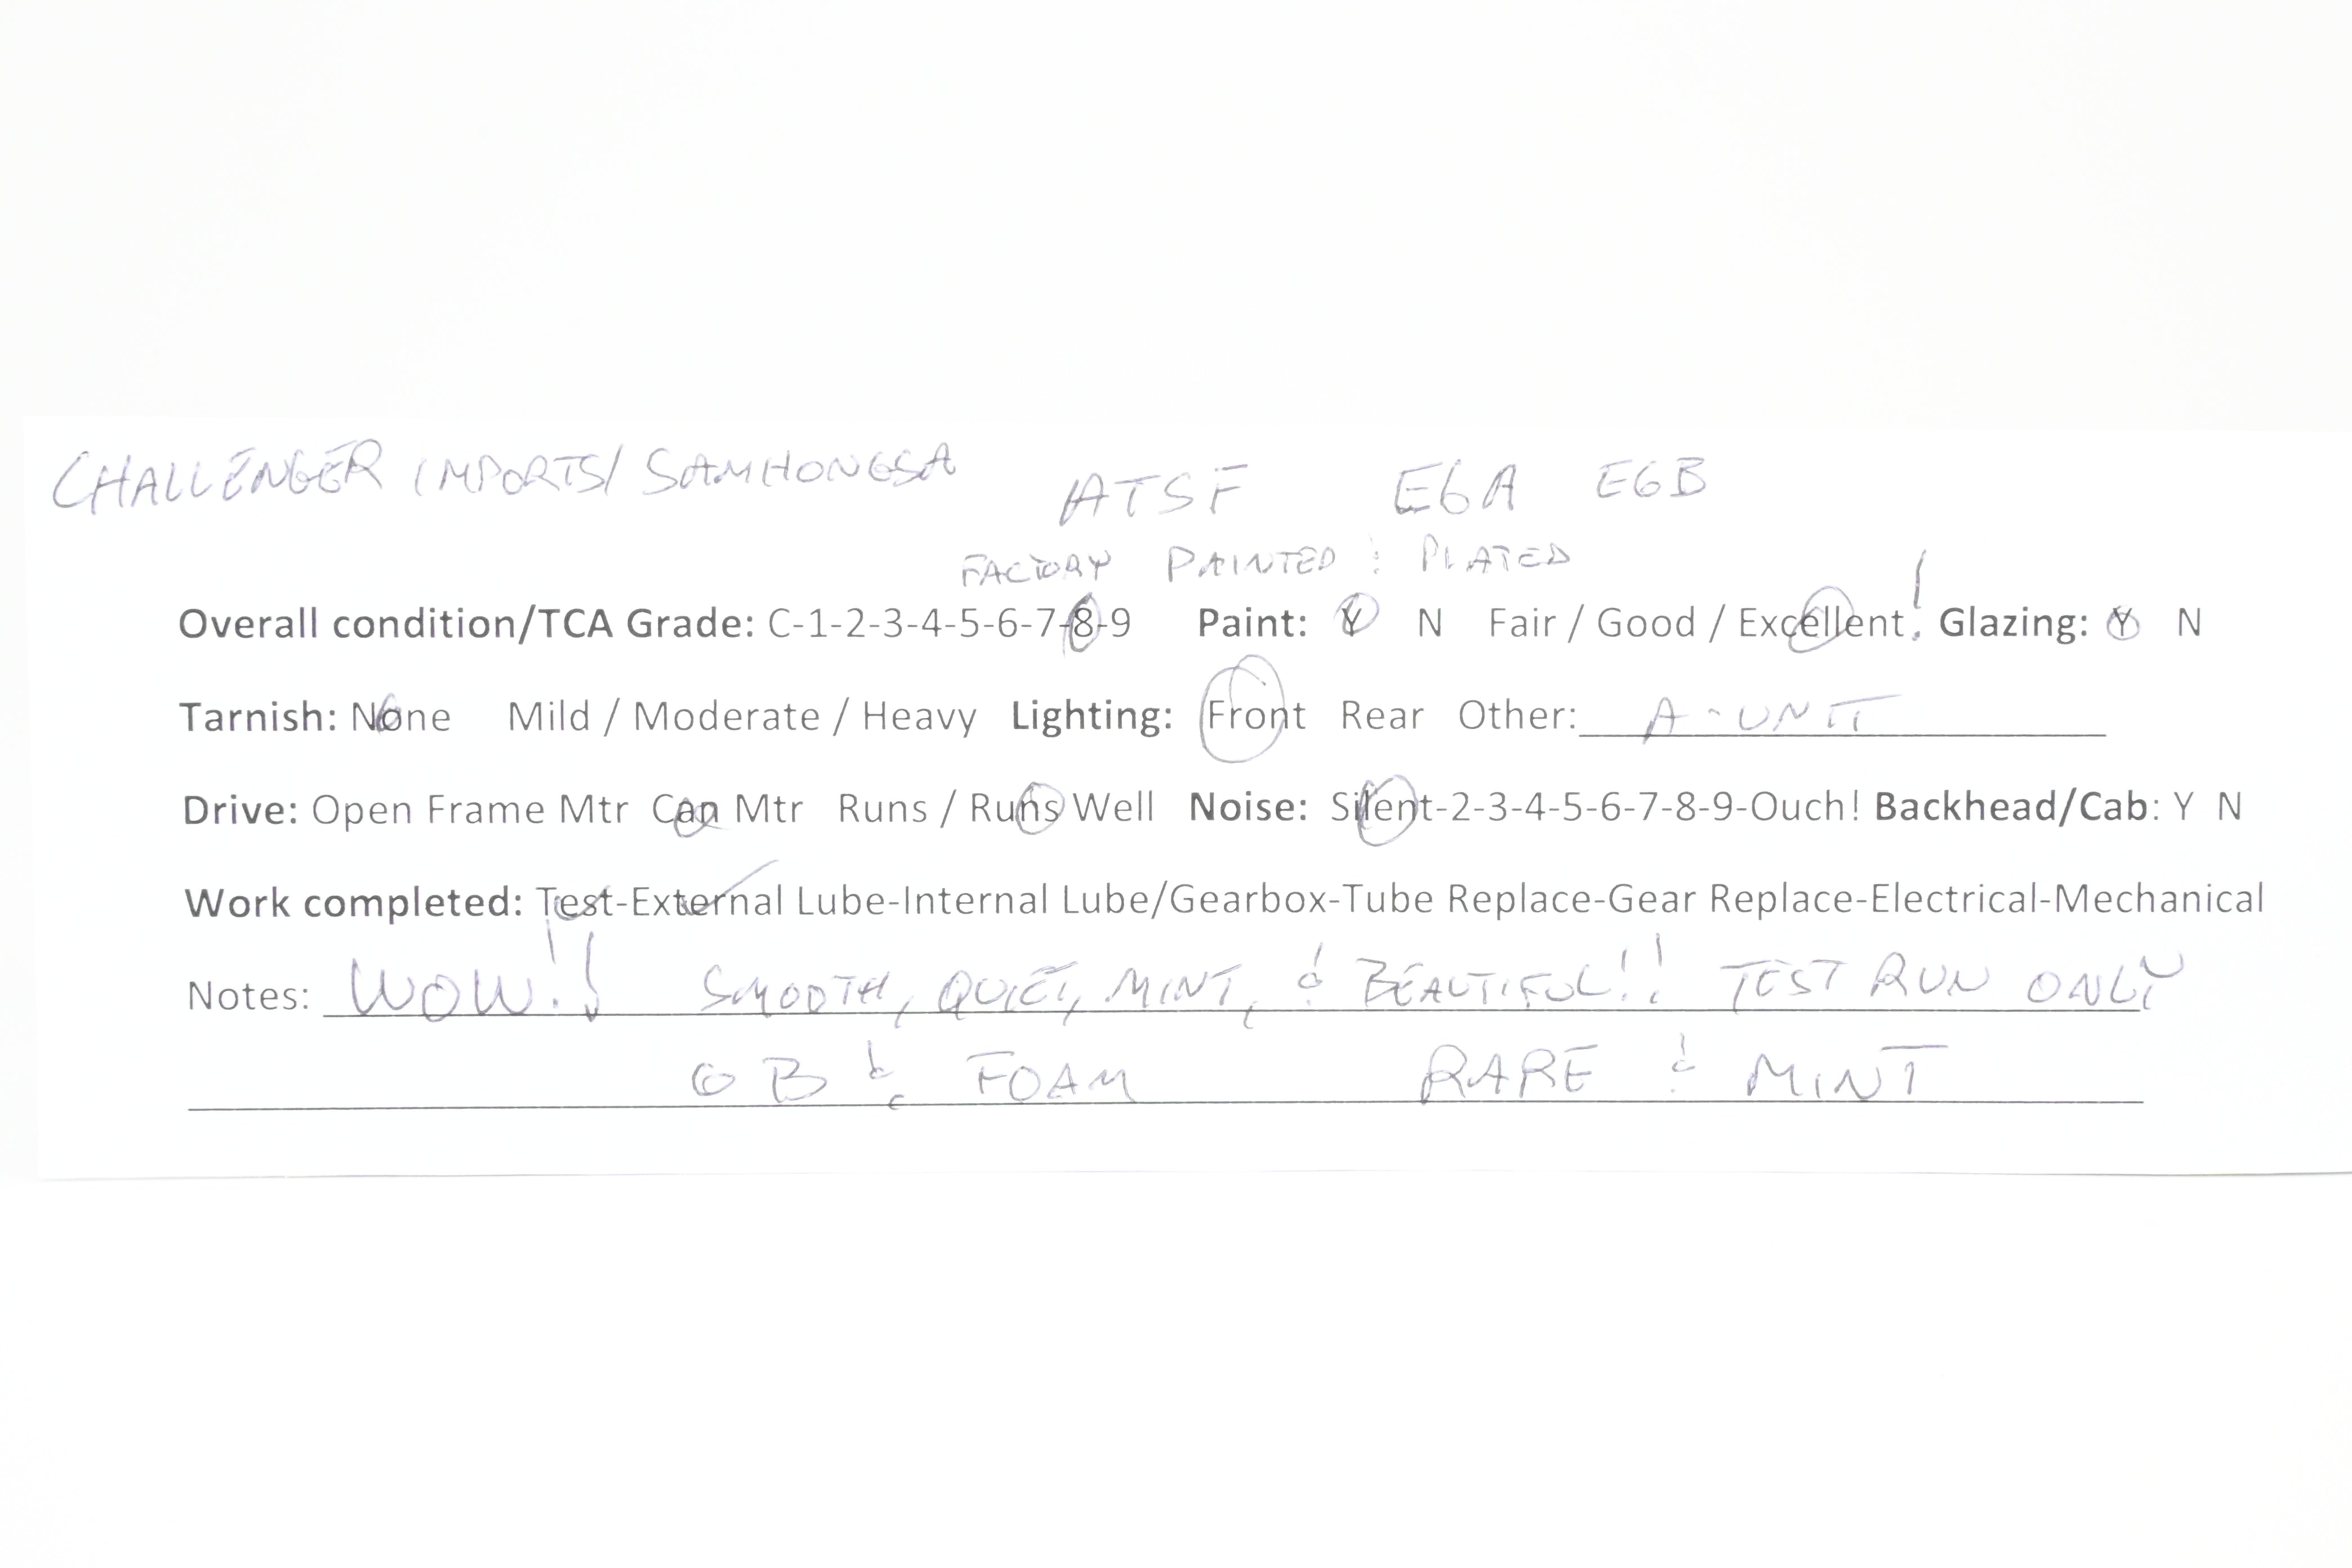 CHALLENGER IMPORTS/ SAMHONGSA ATSF E6A E6B
FACTORY PAINTED & PLATED
Overall condition/TCA Grade: C-1-2-3-4-5-6-7-8-9 Paint: Y N Fair / Good / Excellent! Glazing: Y N
Tarnish: None Mild / Moderate / Heavy Lighting: Front Rear Other: A-UNIT
Drive: Open Frame Mtr Can Mtr Runs / Runs Well Noise: Silent-2-3-4-5-6-7-8-9-Ouch! Backhead/Cab: Y N
Work completed: Test-External Lube-Internal Lube/Gearbox-Tube Replace-Gear Replace-Electrical-Mechanical
Notes: WOW!! SMOOTH, QUIET, MINT, & BEAUTIFUL!! TEST RUN ONLY
OB & FOAM RARE & MINT